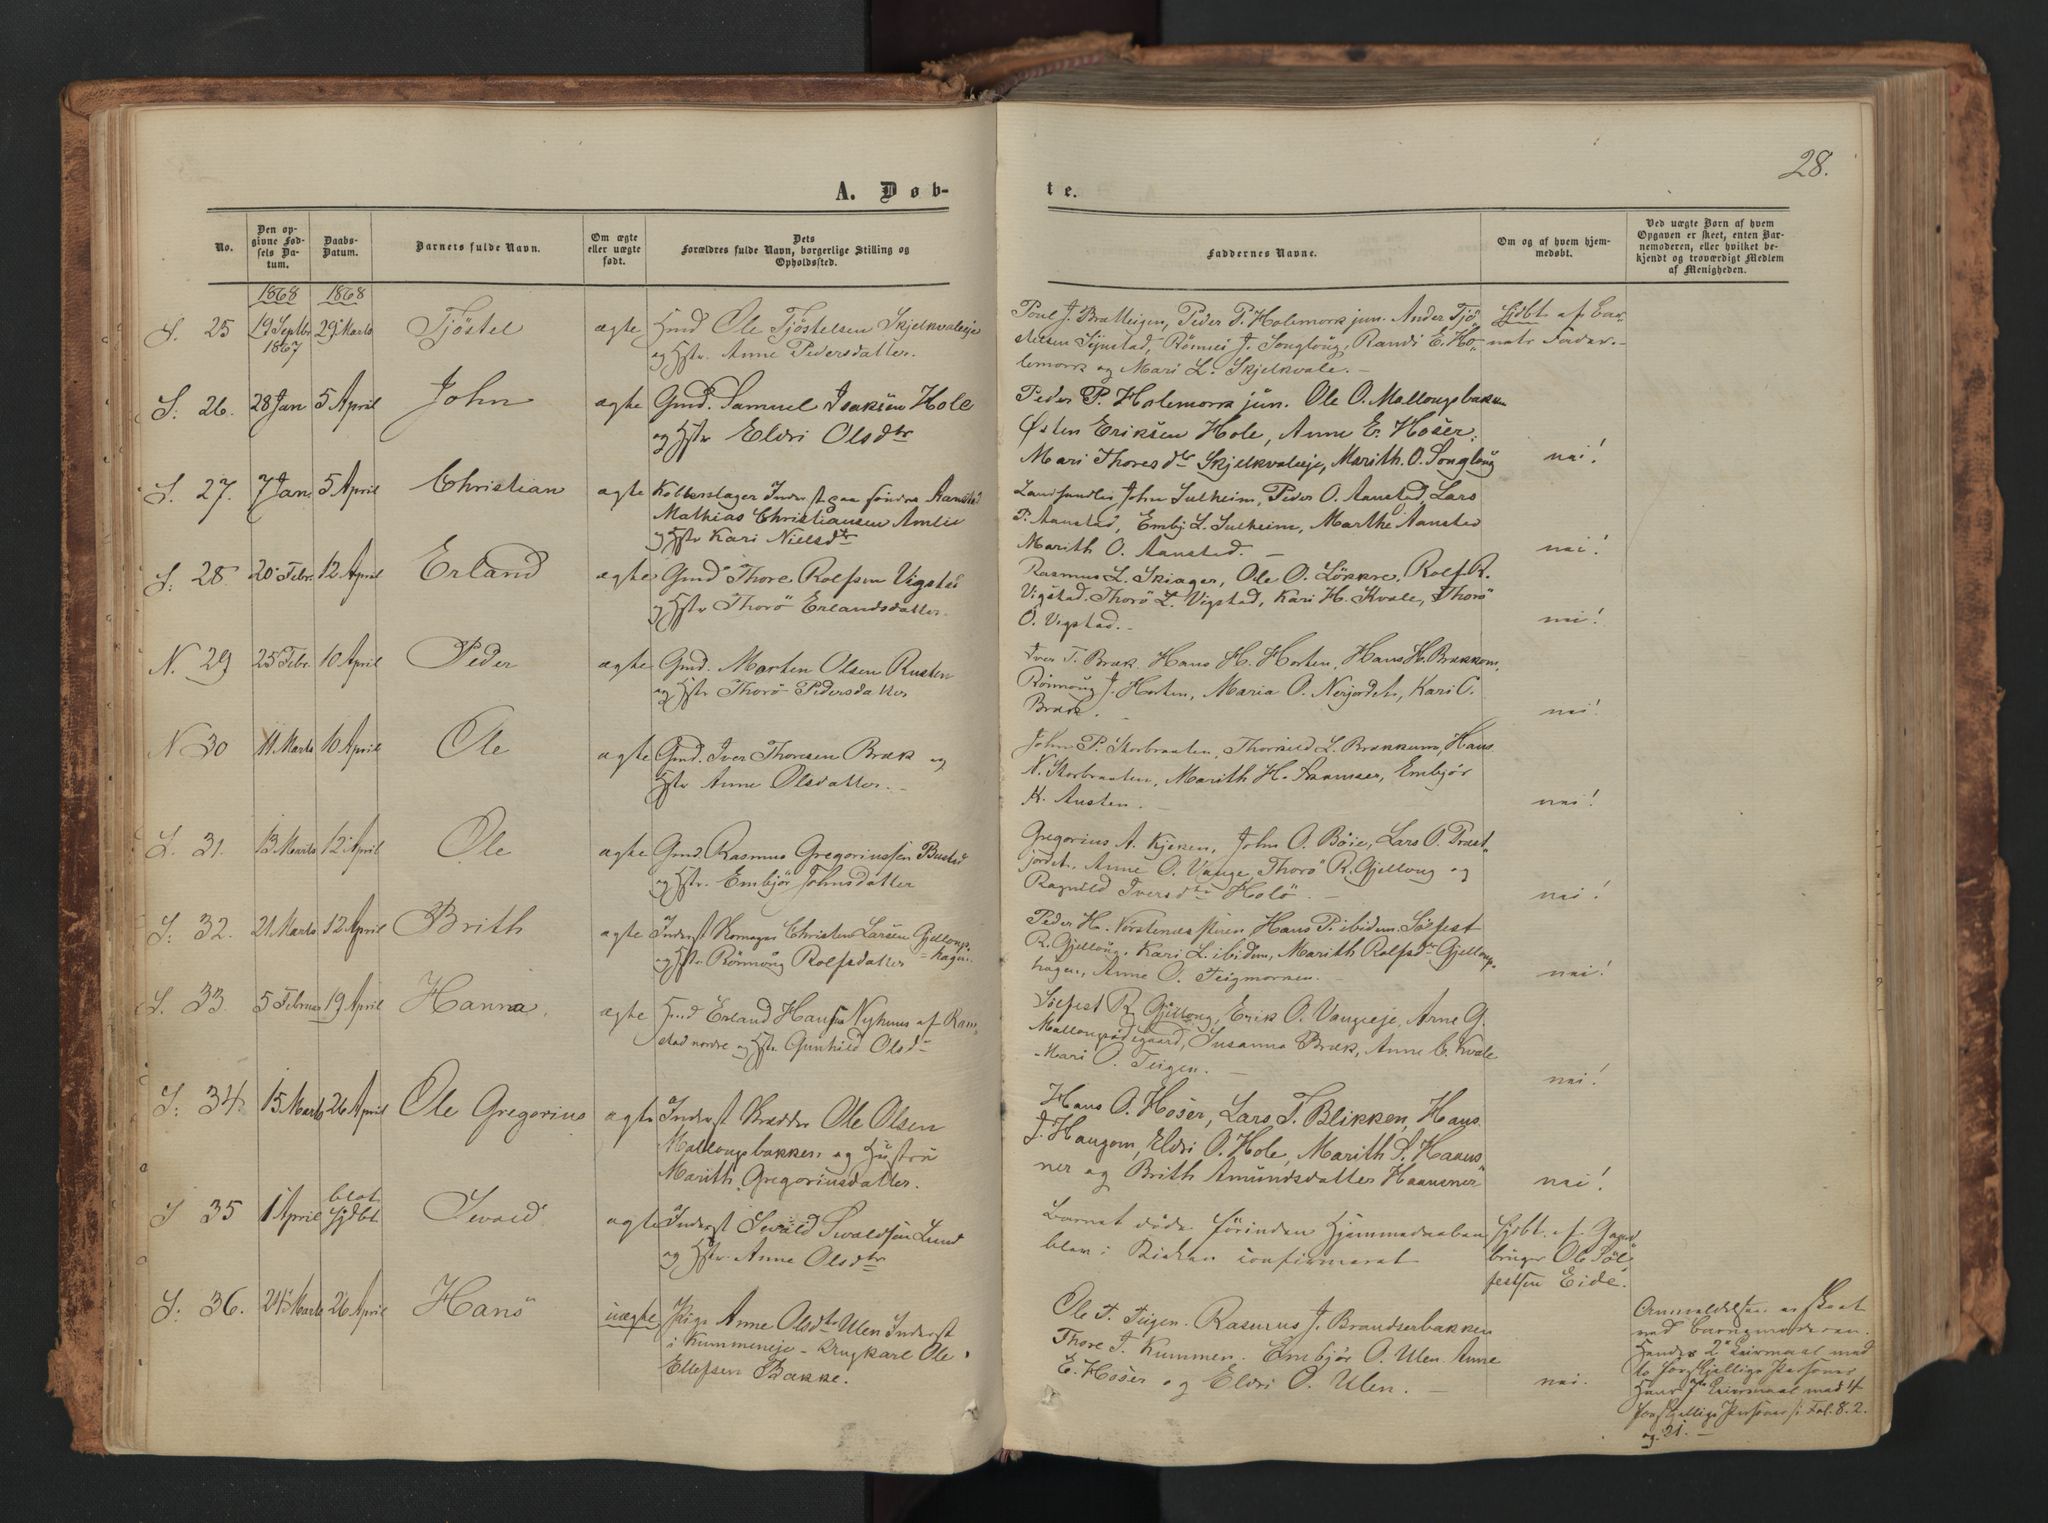 28.
A. Døb-
te.
No.
Den op-
givne Fød-
sels Da-
tum.
Daabs-
Datum.
Barnets fulde Navn.
Om ægte
eller uægte
født.
Dets
Forældres fulde Navn, borgerlige Stilling og
Opholdssted.
Faddernes Navne.
Om og af hvem hjem-
medøbt.
Ved uægte Børn af hvem
Opgaven er skeet, enten Bar-
nemoderen, eller hvilket be-
kjendt og troværdigt Medlem
af Menigheden.
1868 1868
S. 25 19 Septbr 1867 29 Marts Tjöstel ægte Gmd Ole Tjöstelsen Skjelkvaleeje
og Hstr. Anne Pedersdatter.
Poul J. Bratteigen, Peder P. Holemork jun. Ander Tjö-
stelsen J. Songloug, Randi E. Ho-
lemork og Mari L. Skjelkvale. -
Hjdbt. af Bar-
nets Fader. -
S. 26. 28 Jan 5 April John ægte Gmd. Samuel Isaksen Hole
og Hstr Eldri Olsdtr
Peder P. Holemork jun. Ole O. Mallougsbakken
Østen Eriksen Hole, Anne E. Hoser,
Mari Thoresdtr Skjelkvaleeje, Marith O. Songloug
nei!
S. 27. 7 Jan 5 April Christian ægte Kobberslager Inderst paa söndre Aanstad
Mathias Christiansen Amlie
og Hstr Kari Nielsdtr
Landhandler John Sulheim, Peder O. Aanstad, Lars
P. Aanstad, Embj. L. Sulheim, Marthe Aanstad
Marith O. Aanstad. -
nei!
S. 28 20 Febr. 12 April Erland ægte Gmd Thore Rolfsen Vigstad
og Hstr Thorö Erlandsdatter.
Rasmus L. Skiager, Ole O. Lökkre, Rolf R.
Vigstad. Thorö L. Vigstad, Kari H. Kvale, Thorö
O. Vigstad. -
nei!
N. 29 25 Febr. 10 April Peder ægte Gmd. Morten Olsen Rusten
og Hstr Thorö Pedersdatter
Iver T. Bræk, Hans H. Horten, Hans H. Brækkom,
Rönnoug J. Horten, Maria O. Nerjordet, Kari O.
Bræk. -
nei!
N 30 11 Marts 10 April Ole ægte Gmd. Iver Thoresen Bræk og
Hstr Anne Olsdatter. -
John P. Storbraaten, Thorkild L. Brækkum, Hans
N. Storbraaten, Marith H. Embjör
K. Austen. -
nei!
S. 31. 13 Marts 12 April Ole ægte Gmd. Rasmus Gregoriussen Bustad
og Hstr. Embjör Johnsdatter
Gregorius A. Kjeken, John O. Böie, Lars O. Præst-
jordet, Anne O. Vange, Thorö R. Gjelloug og
Ragnild Iversdtr Holö. -
nei!
S. 32. 21 Marts 12 April Brith ægte Inderst Skomager Christen Larsen Gjelloug-
og Hstr Rönnoug Rolfsdatter =hagen.
Peder H. Hans P. ibidem. Sölfest
R. Gjelloug, Kari L. ibidem, Marith Rolfsdtr Gjelloug-
hagen, Anne O. Teigmorken. -
nei!
S. 33. 5 Februar 19 April Hanna. ægte Gmd Erland Hansen Nyhuus af Ram-
stad nordre og Hstr Gunhild Olsdtr
Sölfest R. Gjelloug, Erik O. Vangeeje, Arne G.
Mallougsödegaard, Susanna Bræk, Anne E. Kvale
Mari O. Teigen. -
nei!
S. 34. 15 Marts 26 April Ole Gregorius ægte Inderst Skrædder Ole Olsen
Mallougsbakken og Hustru
Marith Gregoriusdatter.
Hans O. Hoser, Lars T. Blikken, Hans
J. Haugom, Eldri O. Hole, Marith S. Haaus-
ner og Brith Amundsdatter Haausner
nei!
S 35 1 April blot Hjdbt Sevald ægte Inderst Sevald Sevaldsen Lund
og Hstr. Anne Olsdtr
Barnet döde förinden Hjemmedaaben
blev i Kirken confirmeret
Hjdbt. af Gaard-
bruger Ole Söl-
festsen Eide.
S. 36. 24 Marts 26 April Hans uægte Pige Anne Olsdtr Ulen Inderst
i Kummeneje - Ungkarl Ole
Ellefsen Bakke.
Ole T. Teigen. Rasmus J. Brandserbakken
Thore J. Kummen. Embjör O. Ulen. Anne
E. Hoser og Eldri O. Ulen. -
nei.
Anmeldelsen er skeet
ved Barnemoderen.
Hendes 2det Leiermaal med
to forskjellige Personer
Hans 7de Leiermaal med 4
forskjellige Personer Fol. 8. 2.
og 21. -